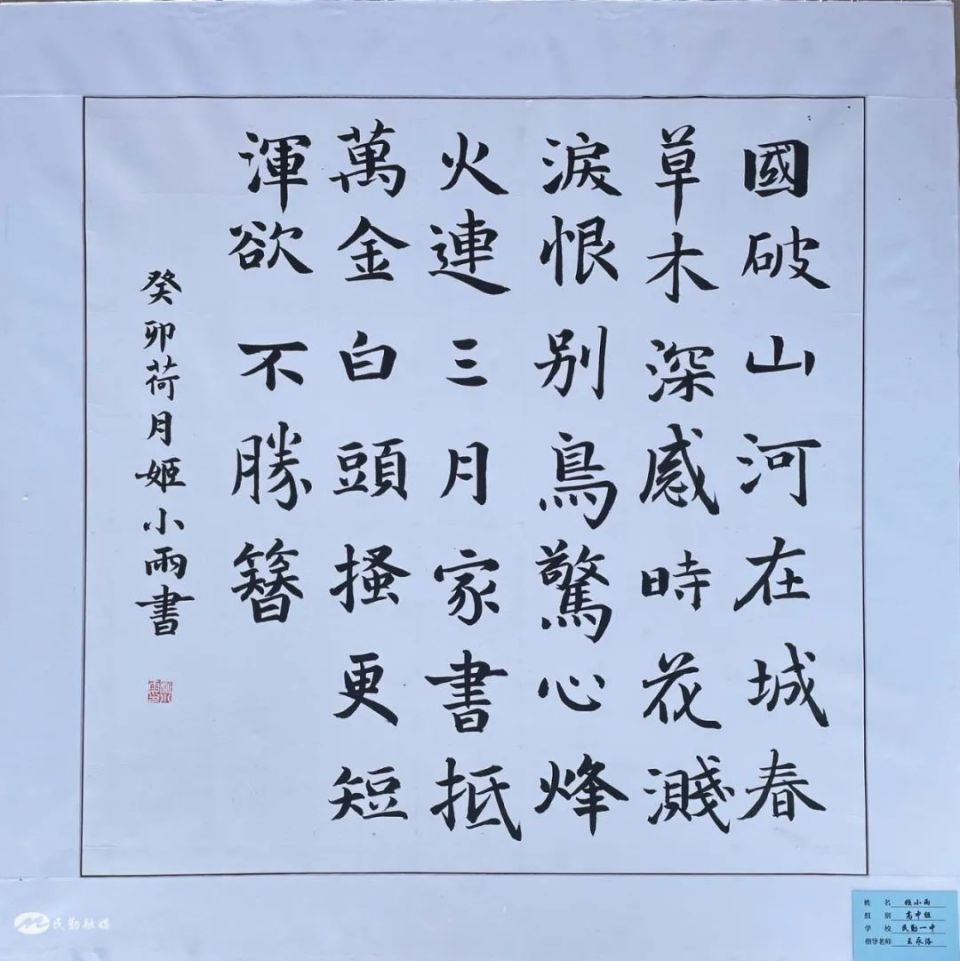 國破山河在城春
草木深感時花濺
淚恨别鳥驚心烽
火連三月家書抵
萬金白頭搔更短
渾欲不勝簪
癸卯荷月姬小雨書
民勤融媒
姓名 姬小雨
組别 高中组
学校 民勤一中
指导老师